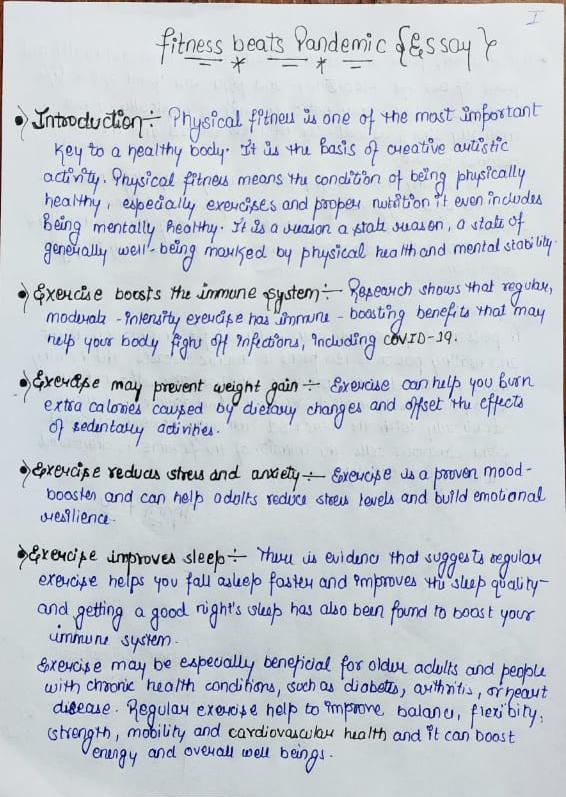 I
Fitness beats Pandemic {Essay}
•) Introduction ÷ Physical fitness is one of the most important
key to a healthy body. It is the basis of creative autistic
activity. Physical fitness means the condition of being physically
healthy, especially exercises and proper nutrition it even includes
being mentally healthy. It is a reason a state reason, a state of
generally well-being marked by physical health and mental stability.
•) Exercise boosts the immune system ÷ Research shows that regular,
moderate-intensity exercise has immune-boosting benefits that may
help your body fight off infections, including COVID-19.
•) Exercise may prevent weight gain ÷ Exercise can help you burn
extra calories caused by dietary changes and offset the effects
of sedentary activities.
•) Exercise reduces stress and anxiety ÷ Exercise is a proven mood-
booster and can help adults reduce stress levels and build emotional
resilience.
•) Exercise improves sleep ÷ There is evidence that suggests regular
exercise helps you fall asleep faster and improves the sleep quality-
and getting a good night's sleep has also been found to boost your
immune system.
Exercise may be especially beneficial for older adults and people
with chronic health conditions, such as diabetes, arthritis, or heart
disease. Regular exercise help to improve balance, flexibity,
strength, mobility and cardiovascular health and it can boost
energy and overall well beings.